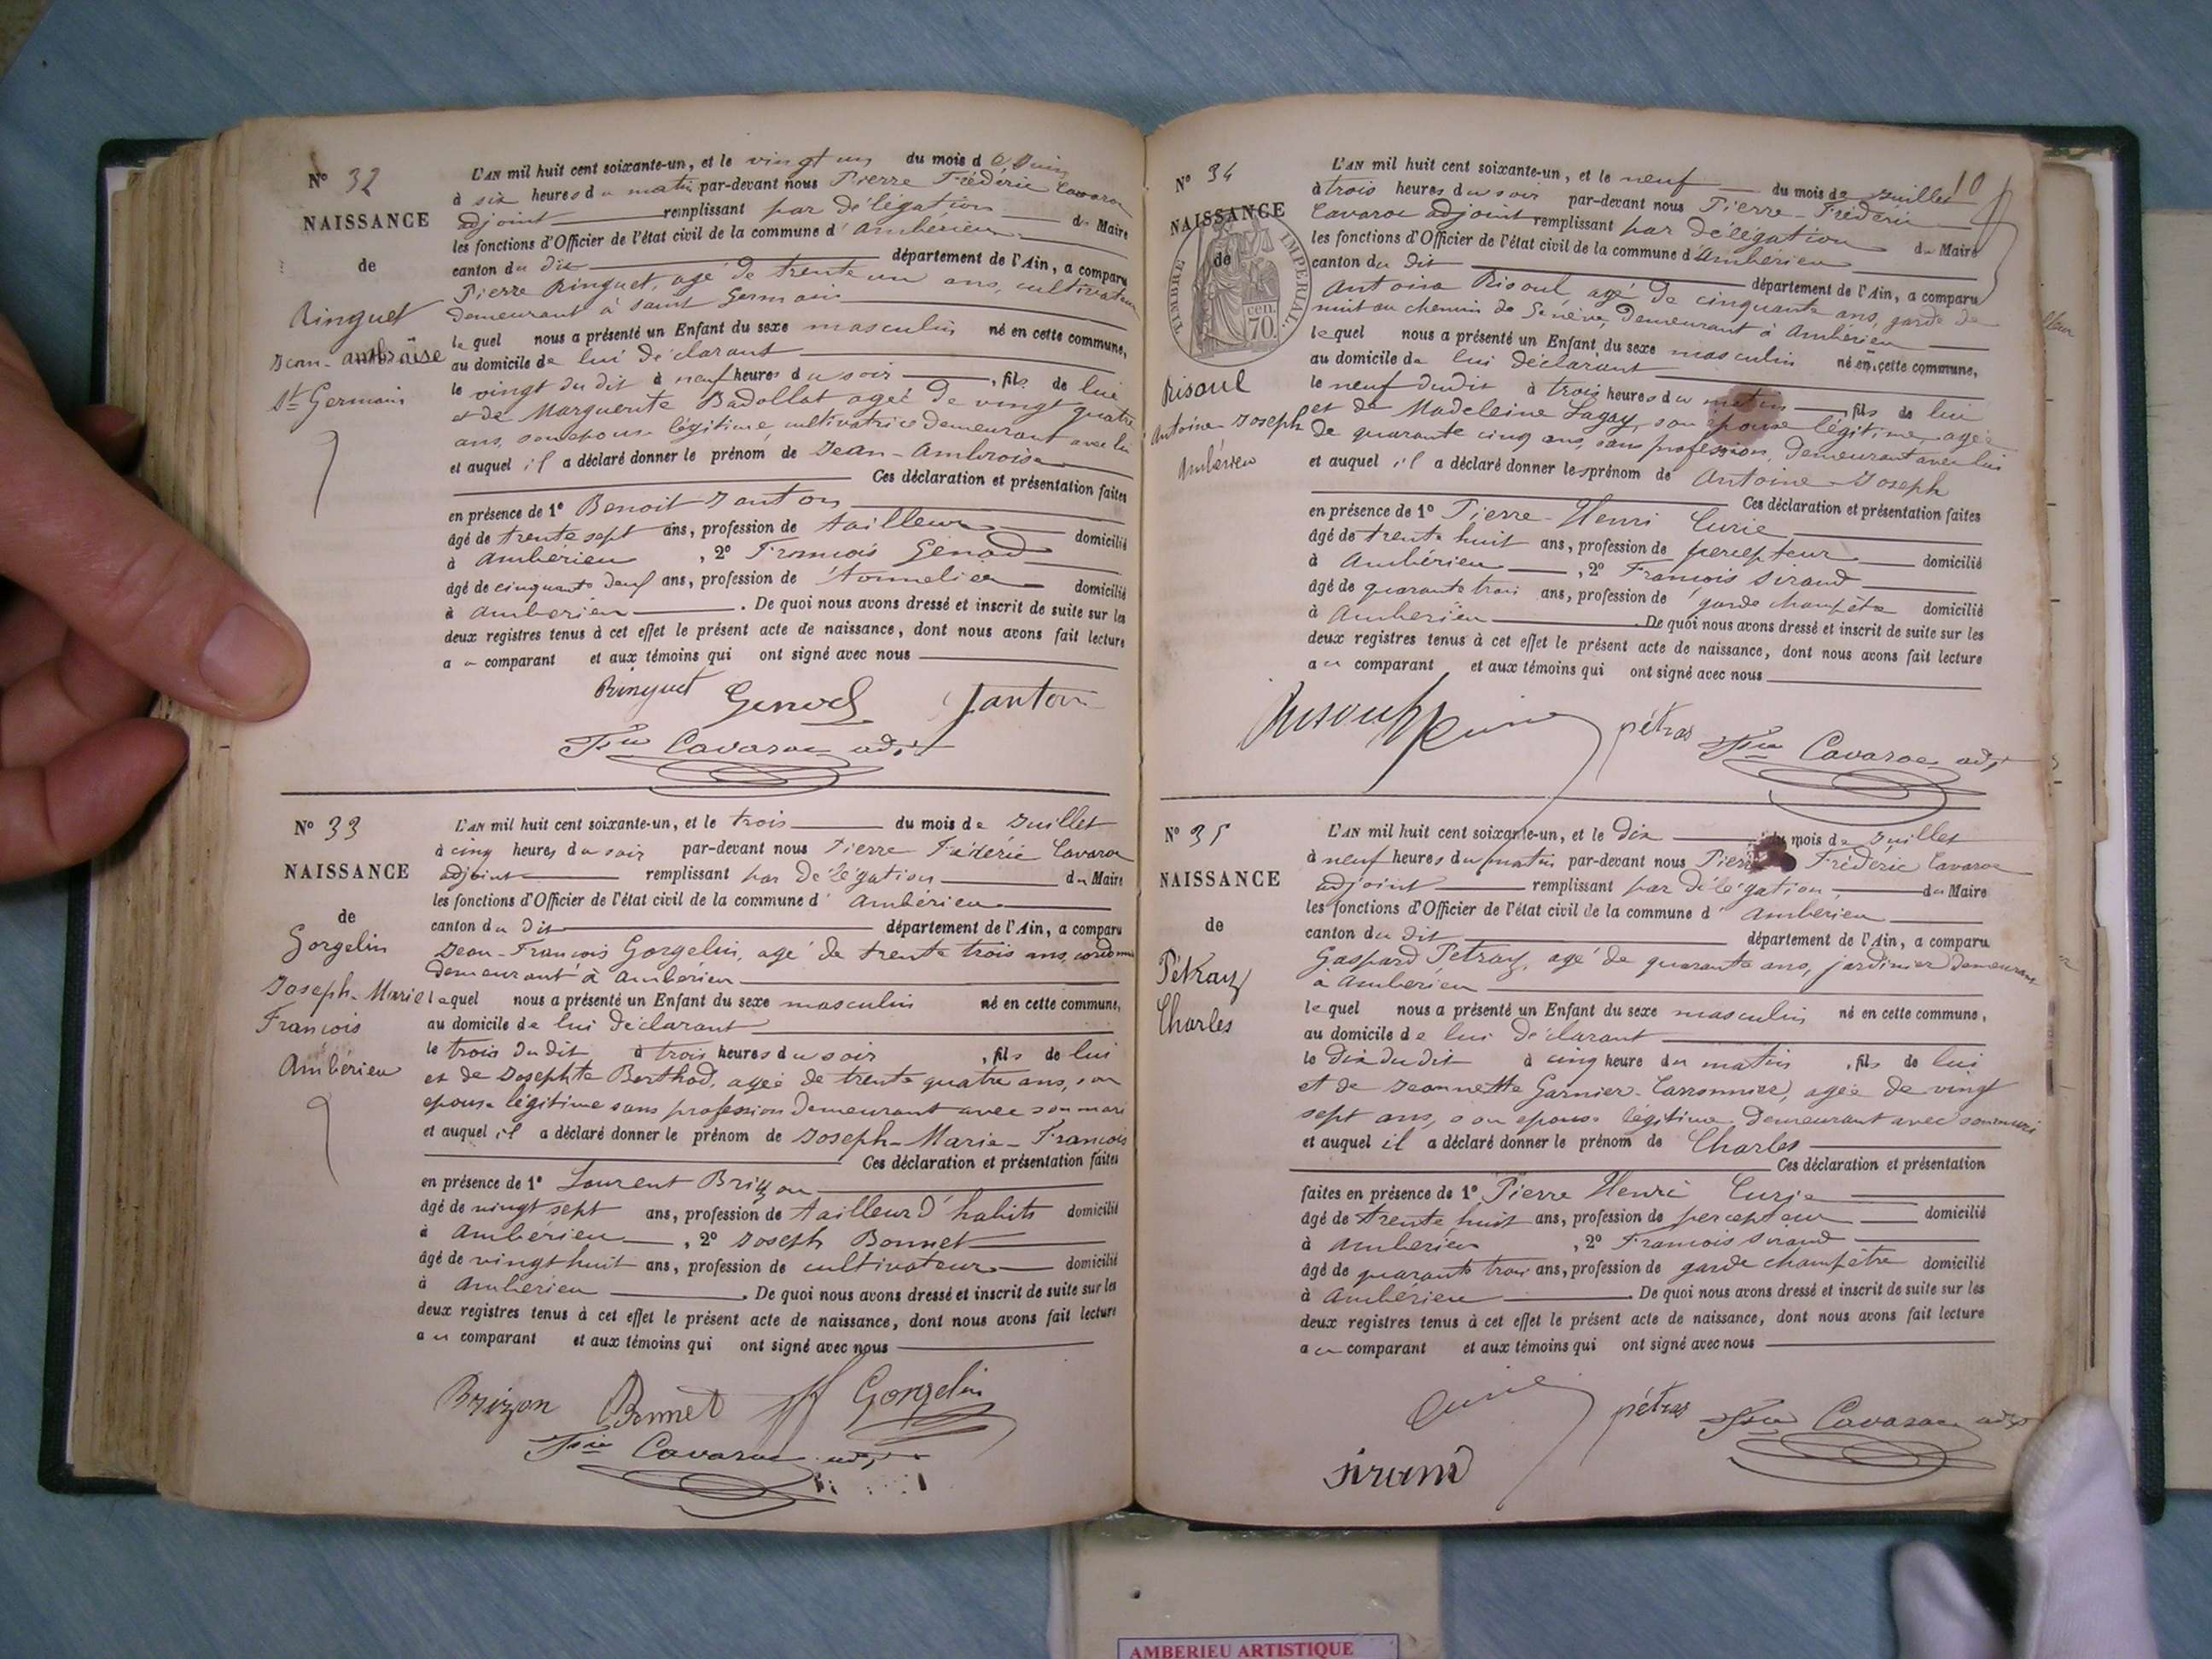 N° 32
NAISSANCE
de
Ringuet
Jean-ambroise
St Germain
L'AN mil huit cent soixante-un, et le vingt un du mois de Juin
à six heures du matin par-devant nous Pierre Frédéric Cavaroc
adjoint remplissant par délégation du Maire
les fonctions d'Officier de l'état civil de la commune d'ambérieu
canton du dit département de l'Ain, a comparu
Pierre Ringuet, agé de trente un ans, cultivateur
demeurant à saint Germain
lequel nous a présenté un Enfant du sexe masculin né en cette commune,
au domicile de lui déclarant
le vingt du dit à neuf heures du soir, fils de lui
et de Marguerite Badollat agée de vingt quatre
ans, son epouse légitime, cultivatrice demeurant avec lui
et auquel il a déclaré donner le prénom de Jean-Ambroise
Ces déclaration et présentation faites
en présence de 1° Benoit Janton
âgé de trente sept ans, profession de tailleur domicilié
à ambérieu, 2° François Genod
âgé de cinquante neuf ans, profession de tonnelier domicilié
à ambérieu. De quoi nous avons dressé et inscrit de suite sur les
deux registres tenus à cet effet le présent acte de naissance, dont nous avons fait lecture
au comparant et aux témoins qui ont signé avec nous
Ringuet Genod Janton
Fric Cavaroc adjt
N° 33
NAISSANCE
de
Gorgelin
Joseph-Marie
François
Ambérieu
L'AN mil huit cent soixante-un, et le trois du mois de Juillet
à cinq heures du soir par-devant nous Pierre Fréderic Cavaroc
adjoint remplissant par délégation du Maire
les fonctions d'Officier de l'état civil de la commune d'ambérieu
canton du dit département de l'Ain, a comparu
Jean-François Gorgelin, agé de trente trois ans,
demeurant à ambérieu
lequel nous a présenté un Enfant du sexe masculin né en cette commune,
au domicile de lui déclarant
le trois du dit à trois heures du soir, fils de lui
et de Josephte Berthod, agée de trente quatre ans, son
epouse légitime sans profession demeurant avec son mari
et auquel il a déclaré donner le prénom de Joseph-Marie-François
Ces déclaration et présentation faites
en présence de 1° Laurent Brizon
âgé de vingt sept ans, profession de tailleur d'habits domicilié
à ambérieu, 2° Joseph Bonnet
âgé de vingt huit ans, profession de cultivateur domicilié
à ambérieu. De quoi nous avons dressé et inscrit de suite sur les
deux registres tenus à cet effet le présent acte de naissance, dont nous avons fait lecture
au comparant et aux témoins qui ont signé avec nous
Brizon Bonnet Gorgelin
Fric Cavaroc adjt
10
N° 34
NAISSANCE
de
TIMBRE IMPERIAL.
cen.
70.
Risoul
Antoine Joseph
Ambérieu
L'AN mil huit cent soixante-un, et le neuf du mois de Juillet
à trois heures du soir par-devant nous Pierre-Fréderic
Cavaroc adjoint remplissant par délégation du Maire
les fonctions d'Officier de l'état civil de la commune d'Ambérieu
canton du dit département de l'Ain, a comparu
Antoine Risoul agé de cinquante ans, garde de
nuit au chemin de Genève, demeurant à Ambérieu
lequel nous a présenté un Enfant du sexe masculin né en cette commune,
au domicile de lui déclarant
le neuf dudit à trois heures du matin fils de lui
et de Madeleine Lagay, son épouse légitime, agée
de quarante cinq ans, sans profession, demeurant avec lui
et auquel il a déclaré donner les prénom de Antoine-Joseph
Ces déclaration et présentation faites
en présence de 1° Pierre-Henri Curie
âgé de trente huit ans, profession de percepteur domicilié
à Ambérieu, 2° François Siraud
âgé de quarante trois ans, profession de garde champêtre domicilié
à Ambérieu. De quoi nous avons dressé et inscrit de suite sur les
deux registres tenus à cet effet le présent acte de naissance, dont nous avons fait lecture
au comparant et aux témoins qui ont signé avec nous
pétras Fric Cavaroc adjt
N° 35
NAISSANCE
de
Pétraz
Charles
L'AN mil huit cent soixante-un, et le dix du mois de Juillet
à neuf heures du matin par-devant nous Pierre Fréderic Cavaroc
adjoint remplissant par délégation du Maire
les fonctions d'Officier de l'état civil de la commune d'Ambérieu
canton du dit département de l'Ain, a comparu
Gaspard Petraz, agé de quarante ans, jardinier demeurant
à Ambérieu
lequel nous a présenté un Enfant du sexe masculin né en cette commune,
au domicile de lui déclarant
le dix du dit à cinq heure du matin, fils de lui
et de Jeannette Garnier-Carronnier, agée de vingt
sept ans, son epouse légitime demeurant avec son mari
et auquel il a déclaré donner le prénom de Charles
Ces déclaration et présentation
faites en présence de 1° Pierre Henri Curie
âgé de trente huit ans, profession de percepteur domicilié
à Ambérieu, 2° François Siraud
âgé de quarante trois ans, profession de garde champêtre domicilié
à Ambérieu. De quoi nous avons dressé et inscrit de suite sur les
deux registres tenus à cet effet le présent acte de naissance, dont nous avons fait lecture
au comparant et aux témoins qui ont signé avec nous
Curie pétras Fric Cavaroc adjt
siraud
AMBERIEU ARTISTIQUE